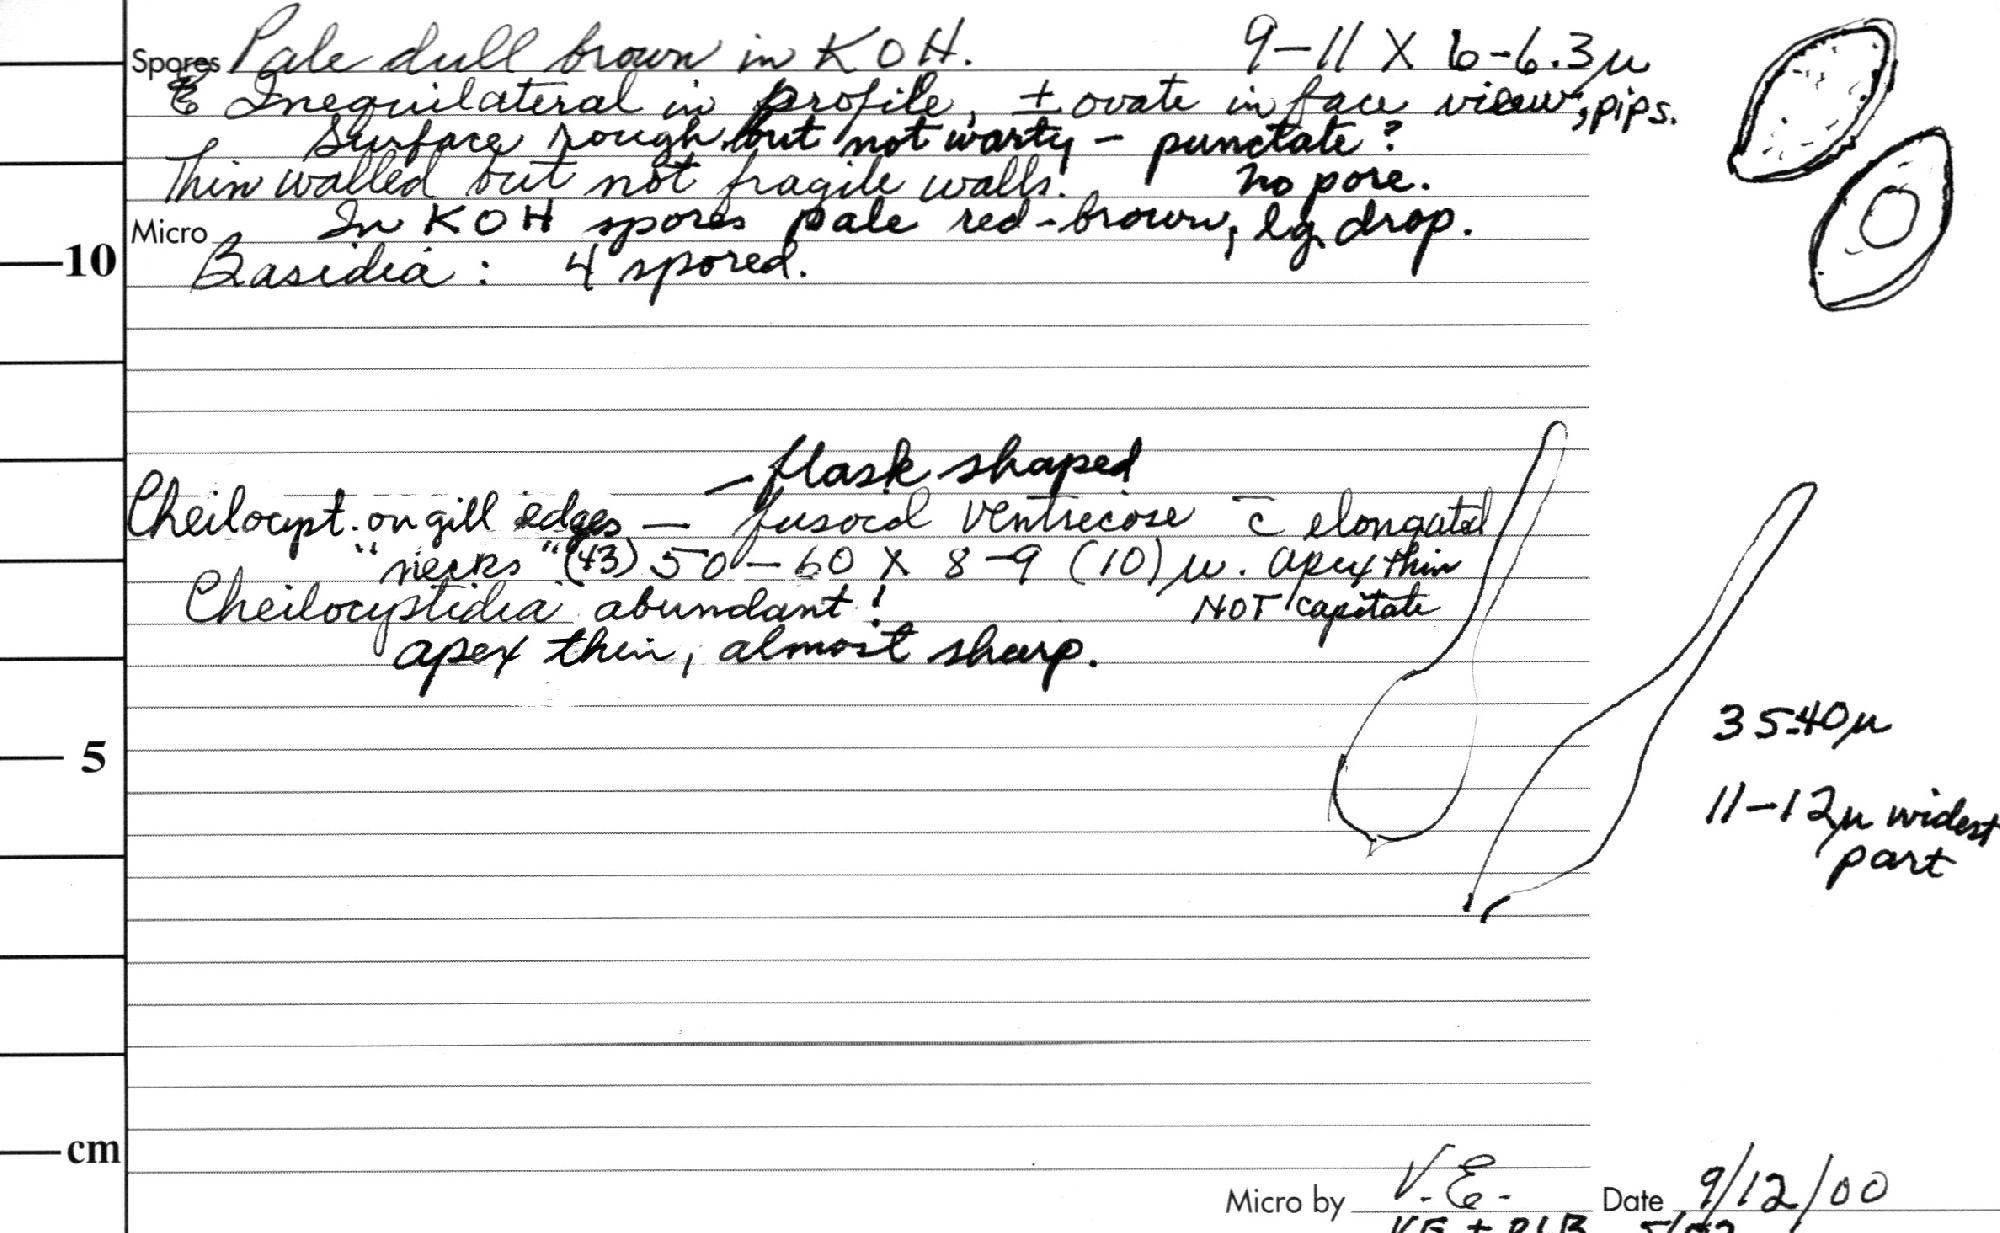 Spores Pale dull brown in KOH. 9-11 X 6-6.3µ
Inequilateral in profile, ± ovate in face view, pips.
Surface rough but not warty - punctate?
Thin walled but not fragile walls. no pore.
Micro In KOH spores pale red-brown, lg. drop.
10
Basidia: 4 spored.
- flask shaped
Cheilocyst. on gill edges - fusoid ventricose c̄ elongated
"necks" (43) 50-60 X 8-9 (10) µ. apex thin
Cheilocystidia abundant! NOT capitate
apex thin, almost sharp.
35-40µ
5
11-12µ widest
part
cm
Micro by V.E. Date 9/12/00